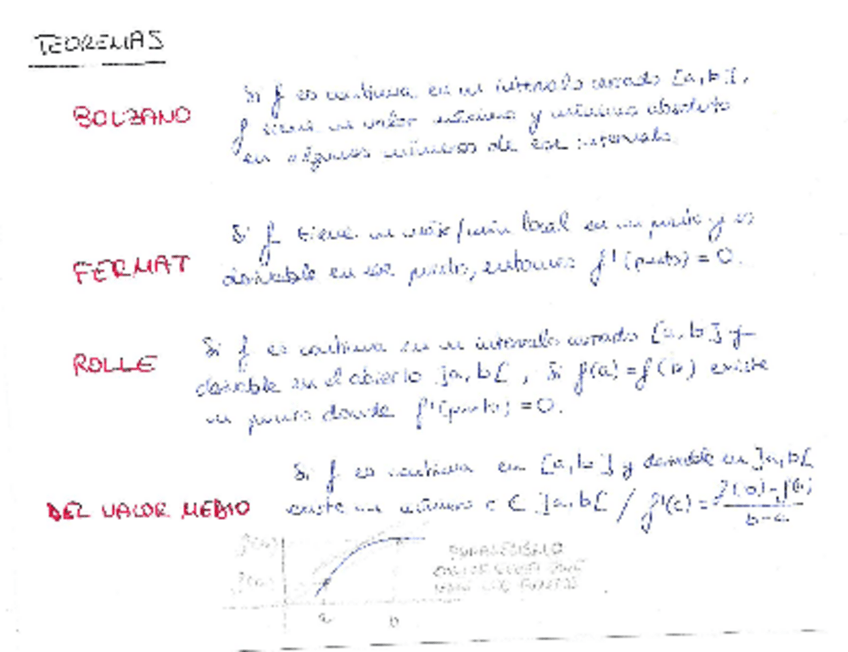 TEOREMAS
BOLZANO
Si f es continua en un intervalo cerrado [a,b],
f tiene un valor máximo y mínimo absoluto
en algunos números de ese intervalo.
FERMAT
Si f tiene un máx/mín local en un punto y es
derivable en ese punto, entonces f'(punto) = 0.
ROLLE
Si f es continua en un intervalo cerrado [a,b] y
derivable en el abierto ]a,b[, si f(a) = f(b) existe
un punto donde f'(punto) = 0.
DEL VALOR MEDIO
Si f es continua en [a,b] y derivable en ]a,b[
existe un número c ∈ ]a,b[ / f'(c) =
b-a
a b